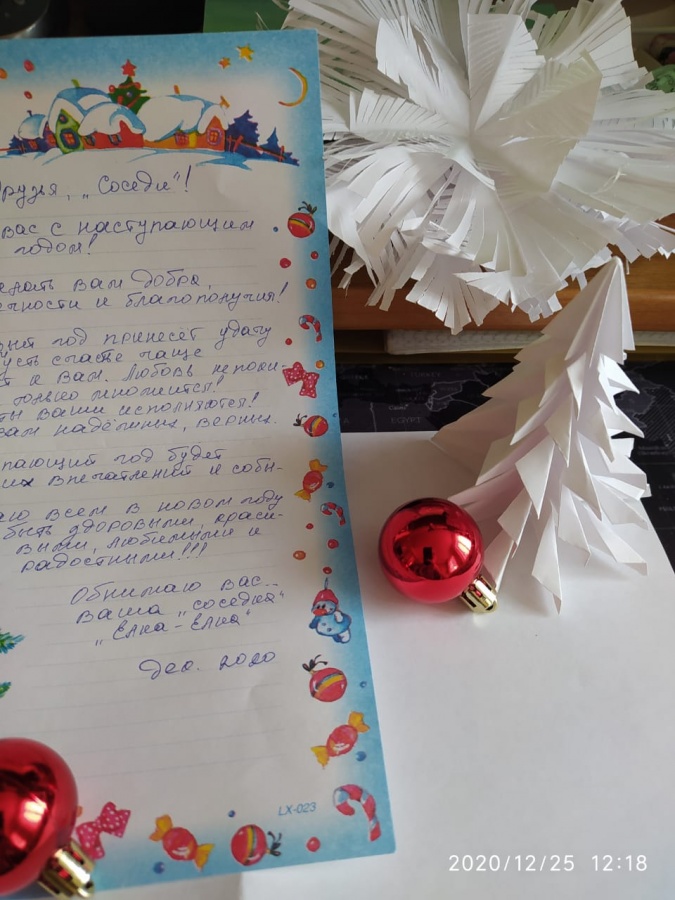 рузья, „Соседи“!
Вас с наступающим
годом!
елать Вам добра,
ечности и благополучия!
вый год принесет удачу
усть счастье чаще
т к Вам. Любовь не поки-
только множится!
ты Ваши исполняются!
вам надёжных, верных.
пающий год будет
их впечатлений и собы-
аю всем в новом году
быть здоровыми, краси-
выми, любимыми и
радостными!!!
Обнимаю Вас...
Ваша „соседка“
„Ёлка-Ёлка“
Дек. 2020
LX-023
EGYPT
2020/12/25 12:18